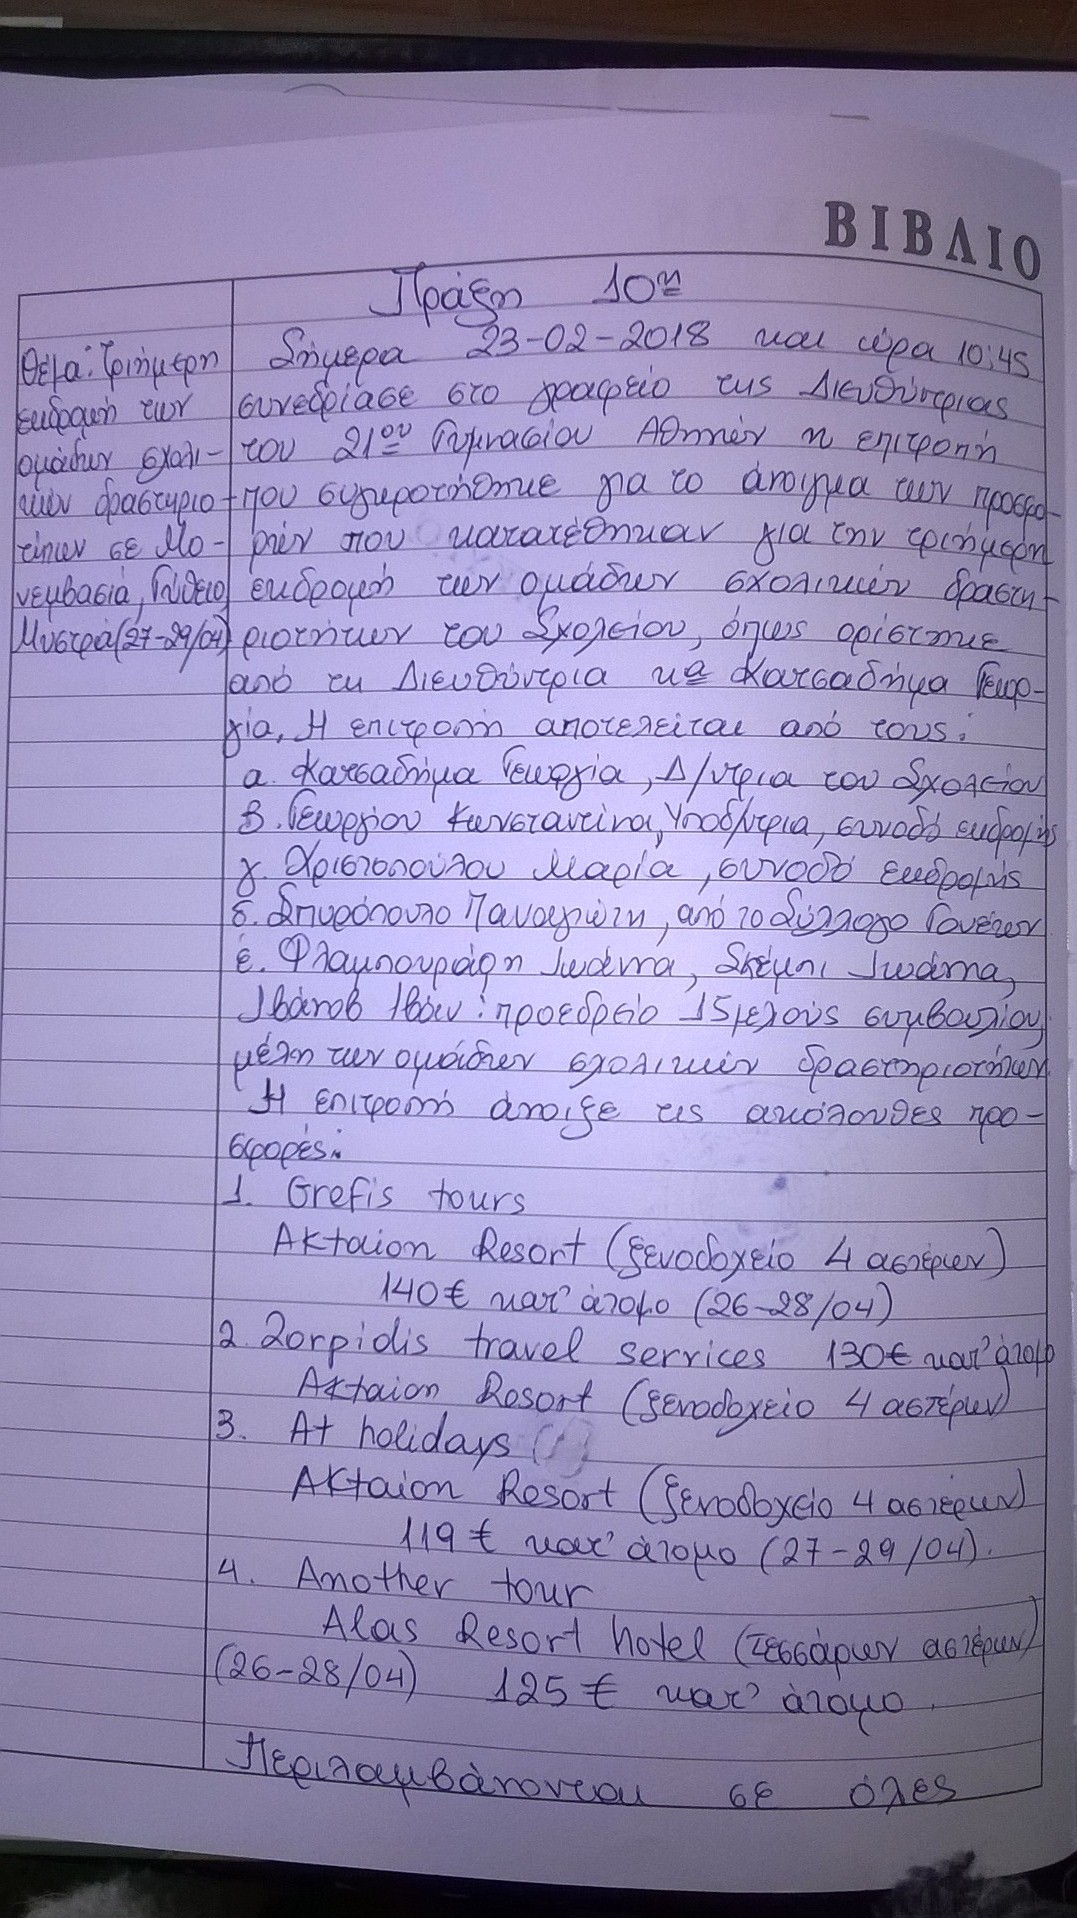 ΒΙΒΛΙΟ
Πράξη 10η
Θέμα: Τριήμερη
εκδρομή των
ομάδων σχολι-
κών δραστηριο-
τήτων σε Μο-
νεμβασιά, Γύθειο,
Μυστρά (27-29/04)
Σήμερα 23-02-2018 και ώρα 10:45
συνεδρίασε στο γραφείο της Διευθύντριας
του 21ου Γυμνασίου Αθηνών η επιτροπή
που συγκροτήθηκε για το άνοιγμα των προσφο-
ρών που κατατέθηκαν για την τριήμερη
εκδρομή των ομάδων σχολικών δραστη-
ριοτήτων του Σχολείου, όπως ορίστηκε
από τη Διευθύντρια κα Κατσαδήμα Γεωρ-
γία. Η επιτροπή αποτελείται από τους:
α. Κατσαδήμα Γεωργία, Δ/ντρια του Σχολείου
β. Γεωργίου Κωνσταντίνα, Υποδ/ντρια, συνοδό εκδρομής
γ. Χριστοπούλου Μαρία, συνοδό εκδρομής
δ. Σπυρόπουλο Παναγιώτη, από το Σύλλογο Γονέων
ε. Φλαμπουράρη Ιωάννα, Σκέμπι Ιωάννα,
Ιβάνοβ Ιβάν: προεδρείο 15μελούς συμβουλίου,
μέλη των ομάδων σχολικών δραστηριοτήτων.
Η επιτροπή άνοιξε τις ακόλουθες προ-
σφορές:
1. Grefis tours
Aktaion Resort (ξενοδοχείο 4 αστέρων)
140€ κατ' άτομο (26-28/04)
2. Zorpidis travel services 130€ κατ' άτομο
Aktaion Resort (ξενοδοχείο 4 αστέρων)
3. At holidays
Aktaion Resort (ξενοδοχείο 4 αστέρων)
119€ κατ' άτομο (27-29/04).
4. Another tour
Alas Resort hotel (τεσσάρων αστέρων)
(26-28/04) 125€ κατ' άτομο.
Περιλαμβάνονται σε όλες